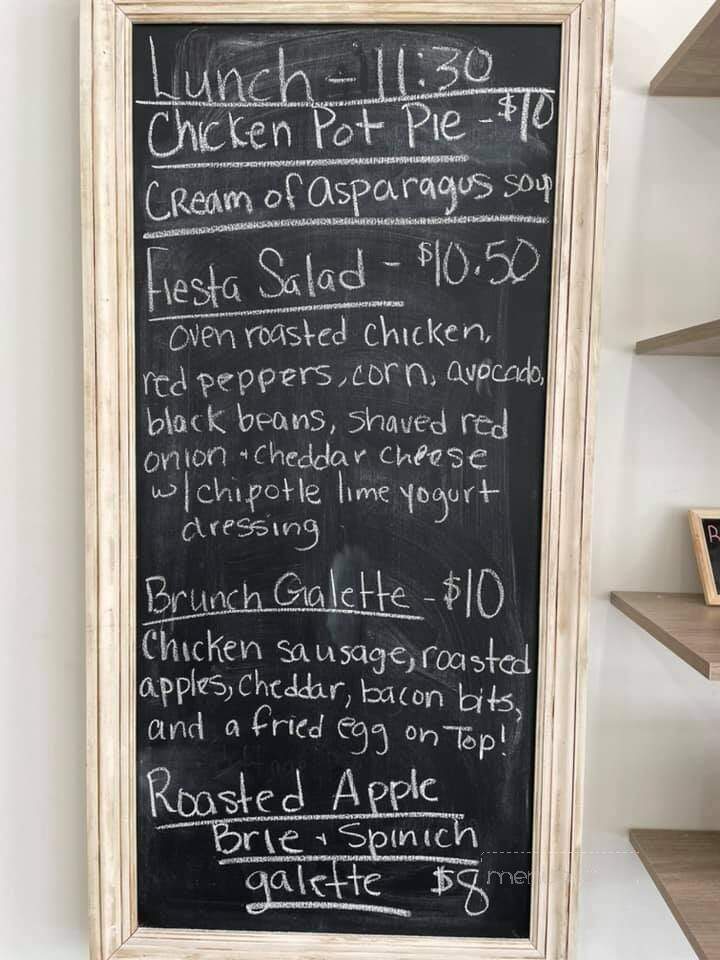 Lunch - 11:30
Chicken Pot Pie - $10
Cream of asparagus soup
Fiesta Salad - $10.50
oven roasted chicken,
red peppers, corn, avocado,
black beans, shaved red
onion + cheddar cheese
w/ chipotle lime yogurt
dressing
Brunch Galette - $10
Chicken sausage, roasted
apples, cheddar, bacon bits,
and a fried egg on Top!
Roasted Apple
Brie + Spinich
galette $8
R